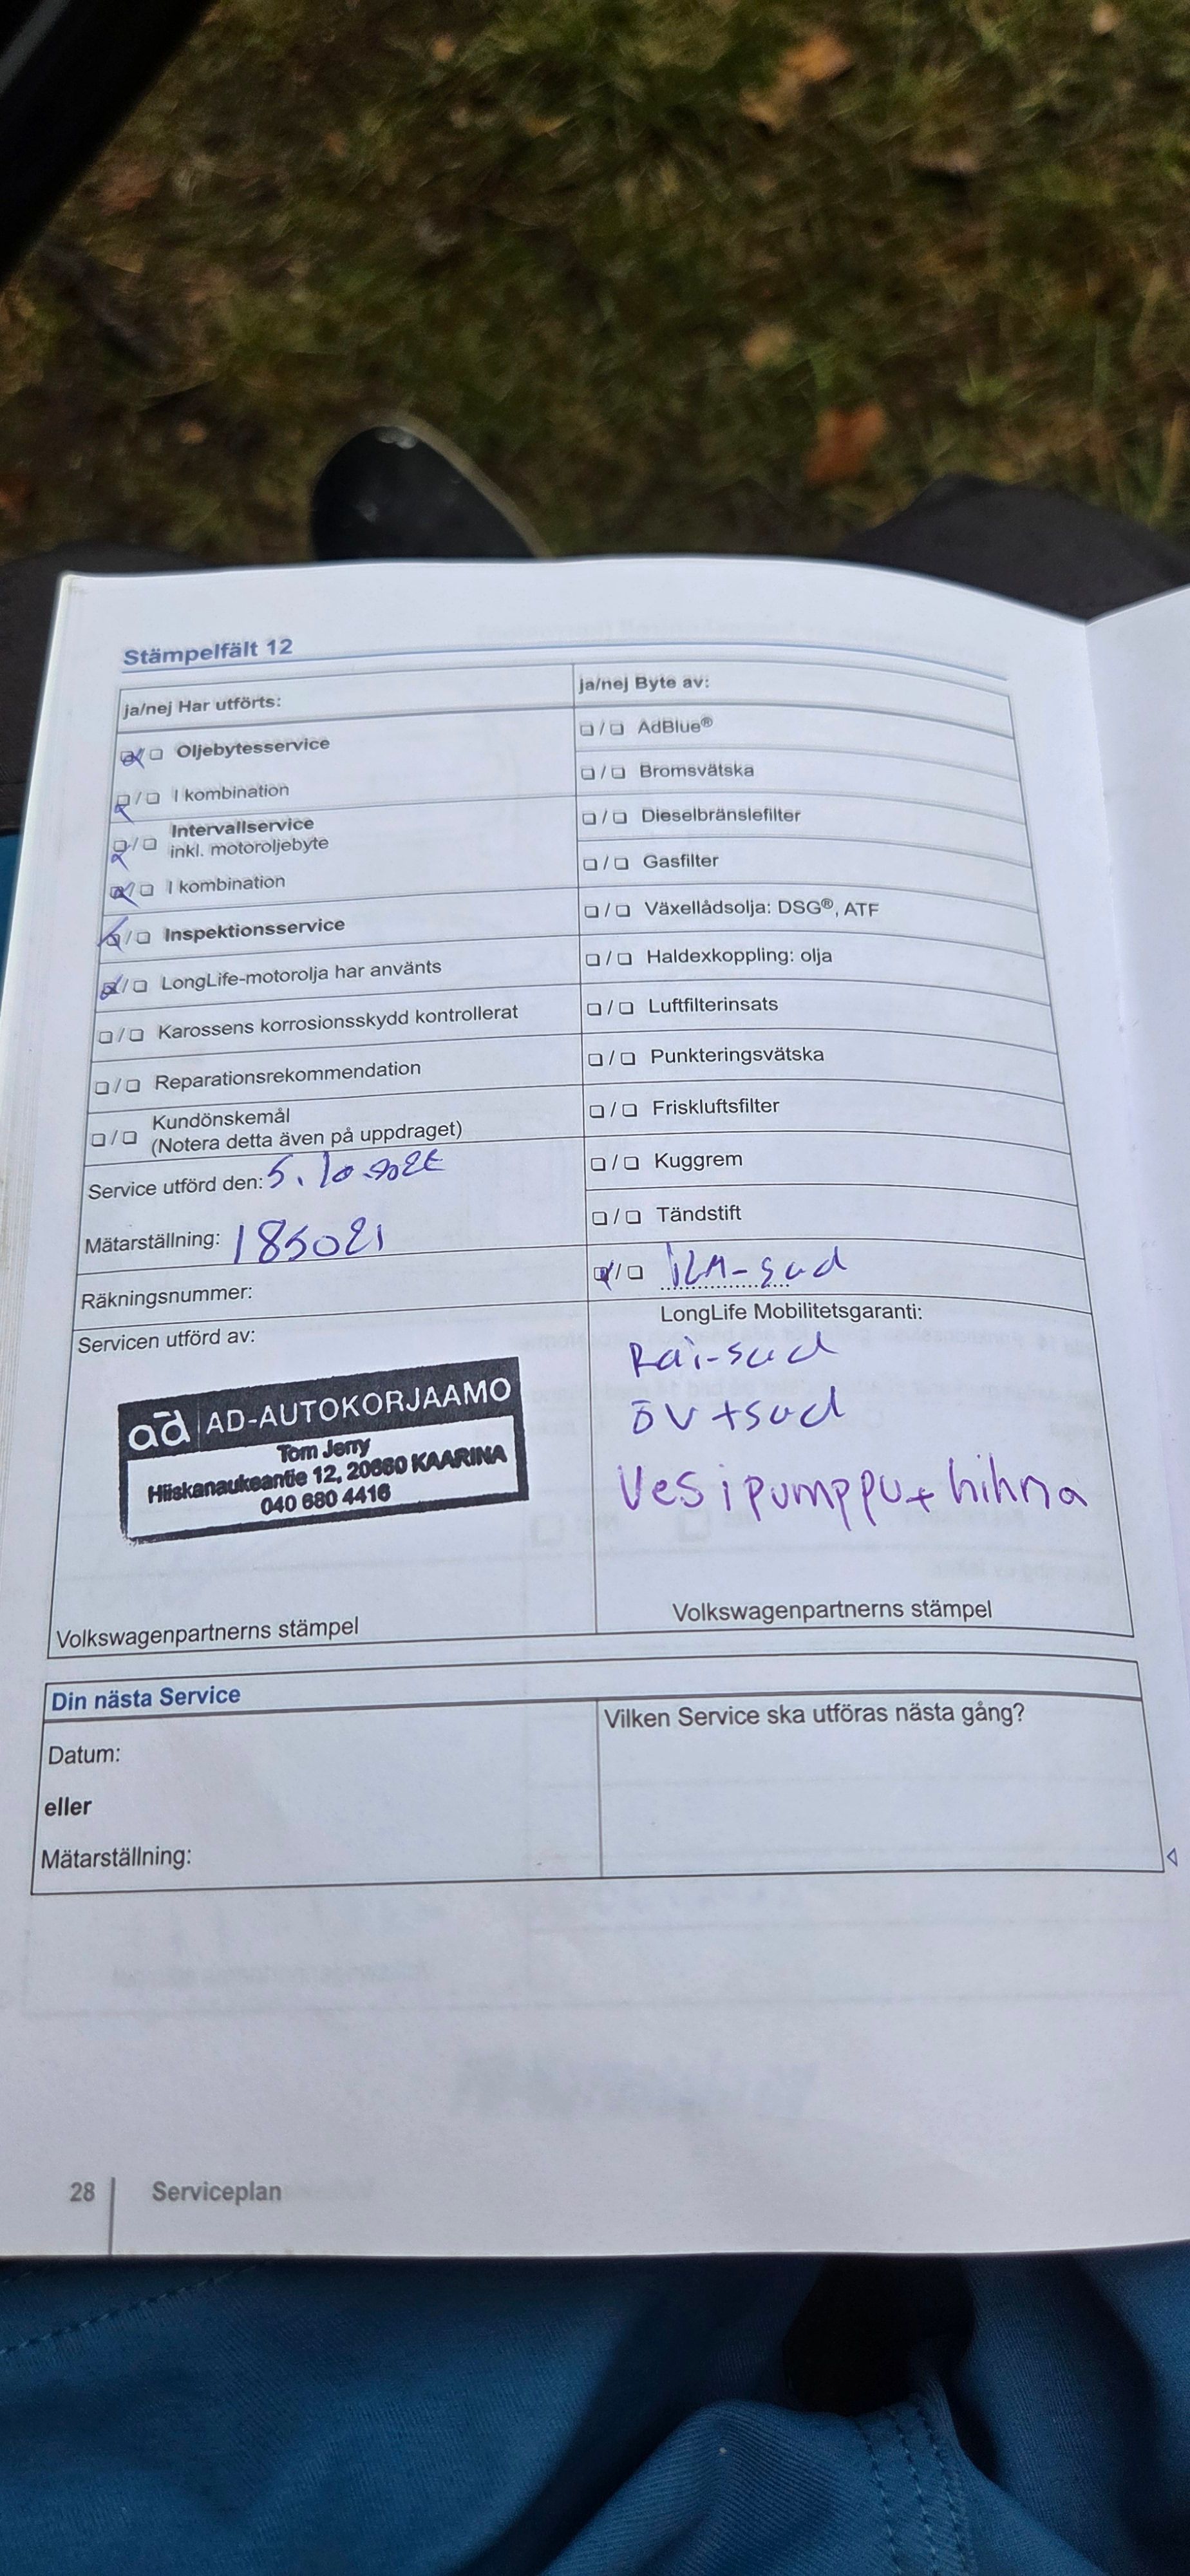 Stämpelfält 12
ja/nej Har utförts:
Oljebytesservice
I kombination
Intervallservice
inkl. motoroljebyte
I kombination
Inspektionsservice
LongLife-motorolja har använts
Karossens korrosionsskydd kontrollerat
Reparationsrekommendation
Kundönskemål
(Notera detta även på uppdraget)
Service utförd den: 5.10.
Mätarställning: 185021
Räkningsnummer:
Servicen utförd av:
ad AD-AUTOKORJAAMO
Tom Jerry
Hiiskanaukeantie 12, 20660 KAARINA
040 680 4416
Volkswagenpartnerns stämpel
ja/nej Byte av:
AdBlue®
Bromsvätska
Dieselbränslefilter
Gasfilter
Växellådsolja: DSG®, ATF
Haldexkoppling: olja
Luftfilterinsats
Punkteringsvätska
Friskluftsfilter
Kuggrem
Tändstift
ILM-sud
LongLife Mobilitetsgaranti:
Rai-sud
ÖV+sud
Vesipumppu+hihna
Volkswagenpartnerns stämpel
Din nästa Service
Datum:
eller
Mätarställning:
Vilken Service ska utföras nästa gång?
28 Serviceplan